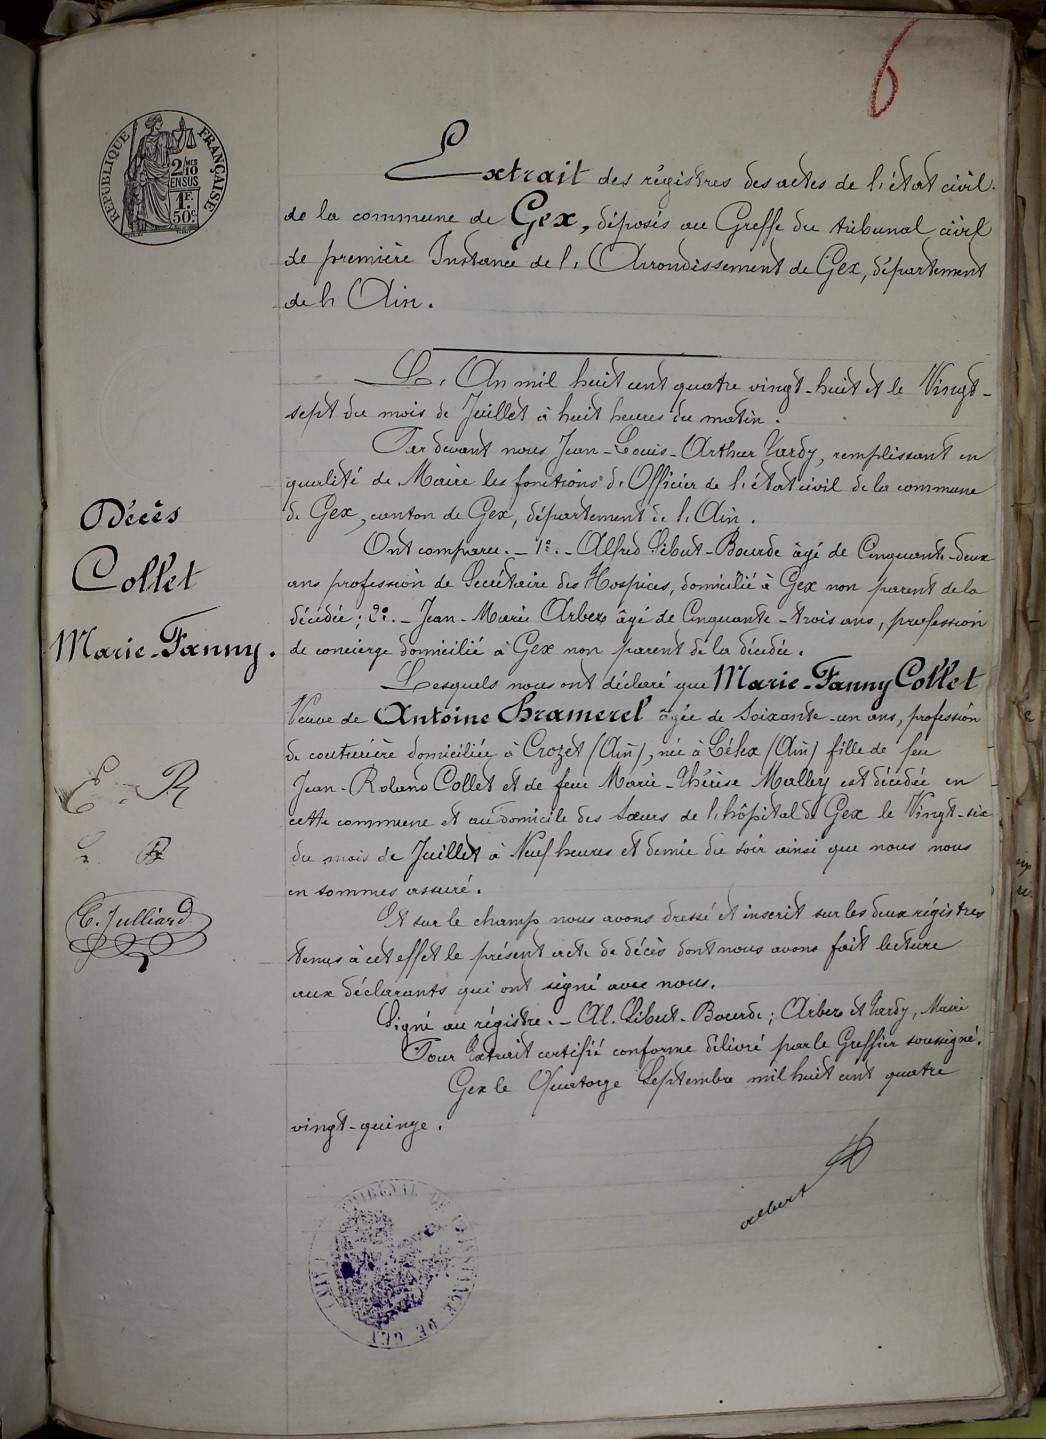 6
RÉPUBLIQUE FRANÇAISE
2/10
EN SUS
1F.
50c.
Extrait des régistres des actes de l'état civil
de la commune de Gex, déposés au Greffe du tribunal civil
de première Instance de l'Arrondissement de Gex, département
de l'Ain.
L'An mil huit cent quatre vingt-huit et le Vingt-
sept du mois de Juillet à huit heures du matin.
Par devant nous Jean-Louis-Arthur Tardy, remplissant en
qualité de Maire les fonctions d'Officier de l'état civil de la commune
de Gex, canton de Gex, département de l'Ain.
Ont comparu. - 1º. - Alfred Sibut-Bourde âgé de Cinquante-deux
ans profession de Secrétaire des Hospices, domicilié à Gex non parent de la
décédée; 2º. - Jean-Marie Arbez âgé de Cinquante-trois ans, profession
de concierge domicilié à Gex non parent de la décédée.
Lesquels nous ont déclaré que Marie-Fanny Collet
Veuve de Antoine Gramerel âgée de Soixante-un ans, profession
de couturière domiciliée à Crozet (Ain), née à Lélex (Ain) fille de feu
Jean-Roland Collet et de feue Marie-Thérèse Malley est décédée en
cette commune et au domicile des Sœurs de l'hôpital de Gex le Vingt-six
du mois de Juillet à Neuf heures et demie du soir ainsi que nous nous
en sommes assuré.
Et sur le champ nous avons dressé et inscrit sur les deux régistres
tenus à cet effet le présent acte de décès dont nous avons fait lecture
aux déclarants qui ont signé avec nous.
Signé au régistre. - Al. Sibut-Bourde; Arbez et Tardy, Maire
Pour Extrait certifié conforme délivré par le Greffier soussigné.
Gex le Quatorze Septembre mil huit cent quatre
vingt-quinze.
Décès
Collet
Marie-Fanny.
E. R
C. Julliard